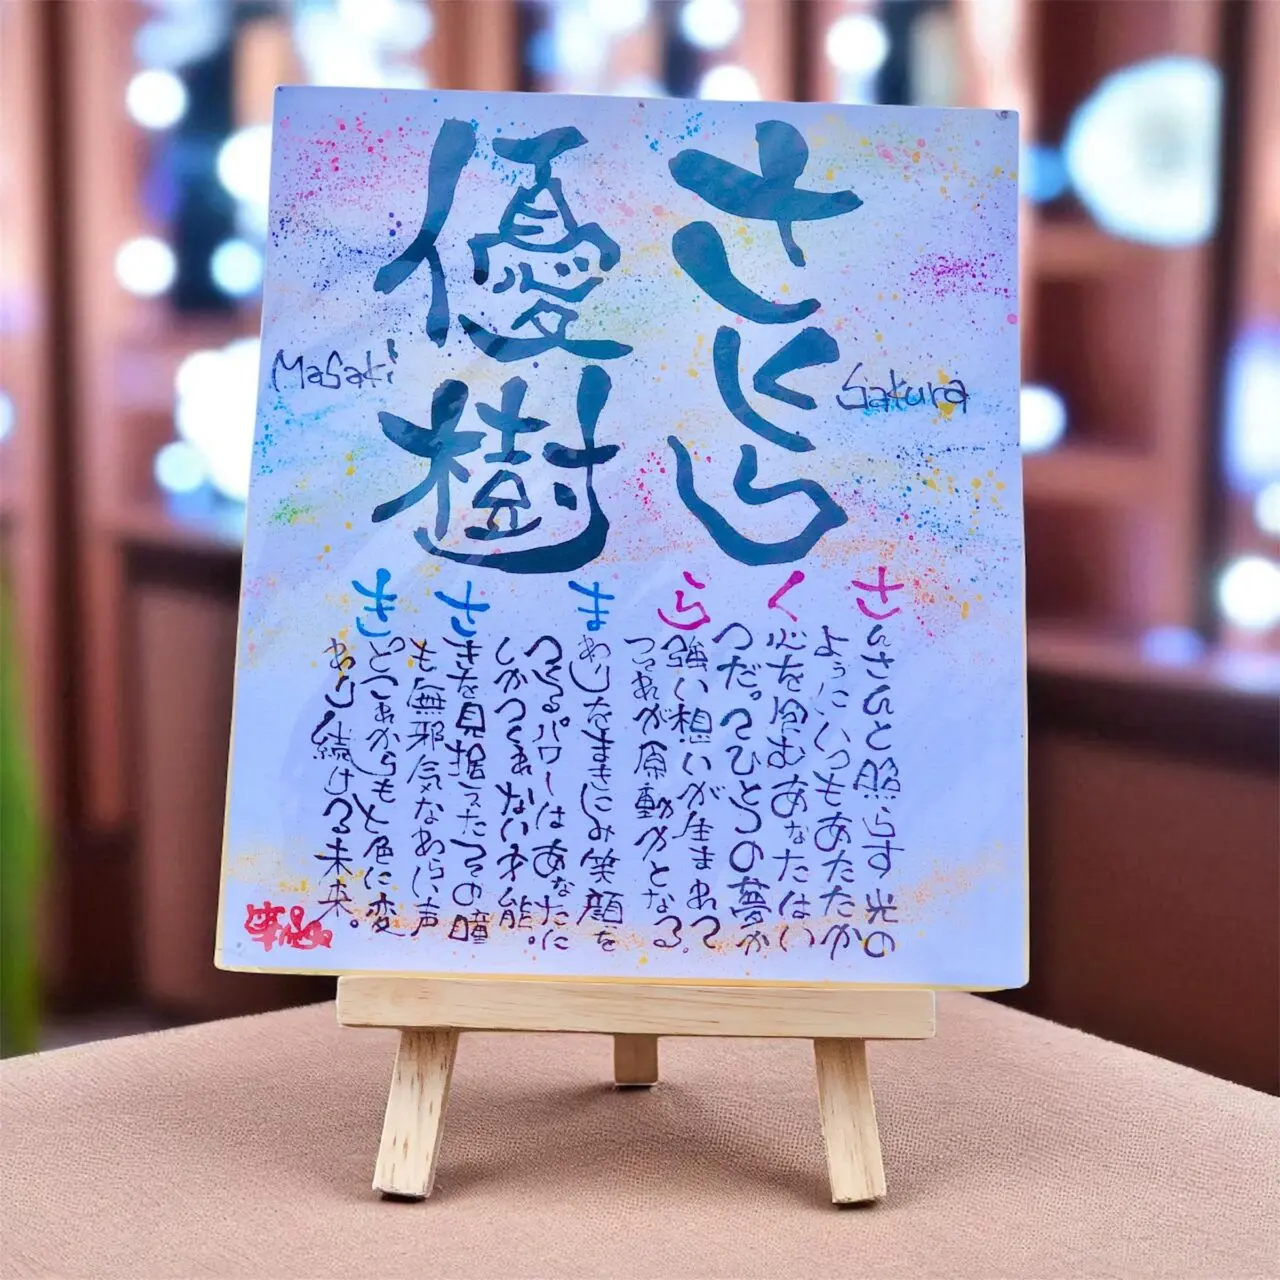 さくら
Sakura
優樹
Masaki
さんさんと照らす光の
ようにいつもあたたか
く心を包むあなたはい
つだってひとつの夢か
ら強い想いが生まれて
それが原動力となる。
まわりをまきこみ笑顔を
つくるパワーはあなたに
しかつくれない才能。
さきを見据えたその瞳
も無邪気なわらい声
きっとこれからもと色に変
わり続ける未来。